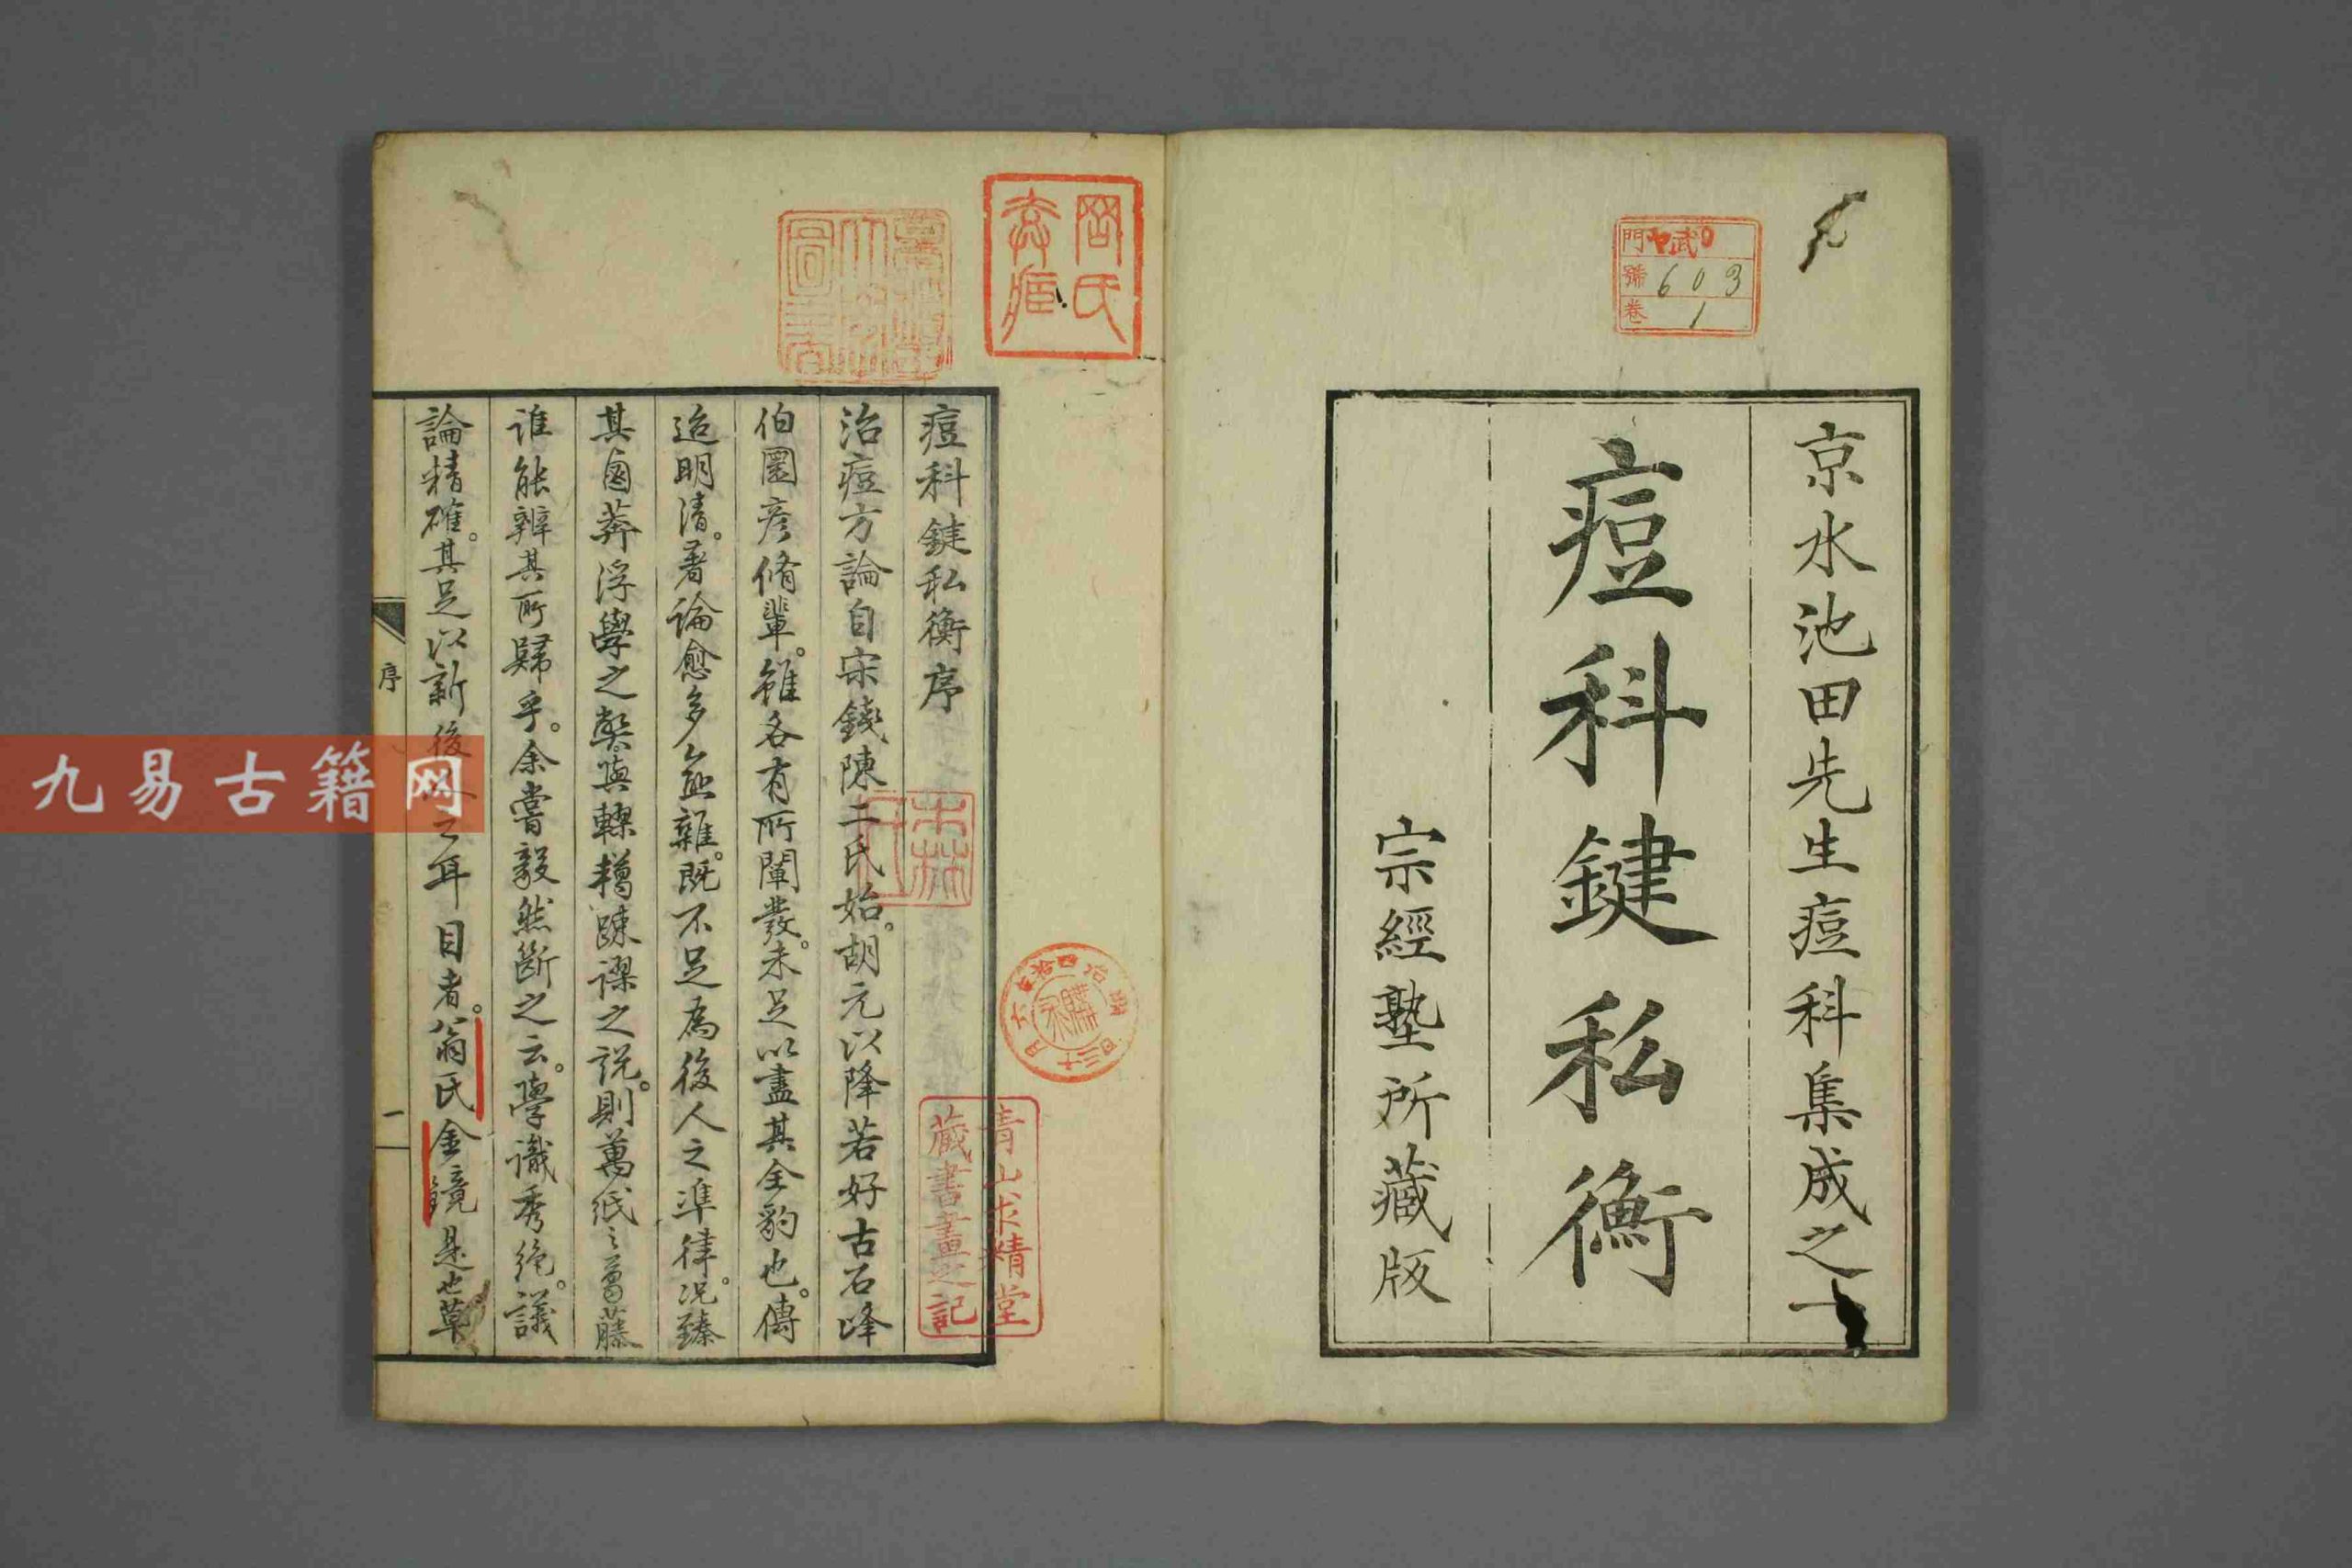 京水池田先生痘科集成之一
痘科鍵私衡
宗經塾所藏版
門 武
號 603
卷 1
痘科鍵私衡序
治痘方論自宋錢陳二氏始。胡元以降若好古石峰
伯圜彦脩輩。雖各有所闡發。未足以盡其全豹也。傳
迨明清。著論愈多愈雜。既不足為後人之準律。況臻
其鹵莽浮學之弊與轇轕踈謬之説。則萬紙之葛藤
誰能辨其所歸乎。余嘗毅然斷之云。學識秀絶。議
論精確。其足以新後人之耳目者。翁氏金鏡是也草
序
一
青山求精堂
藏書畫之記
九易古籍网